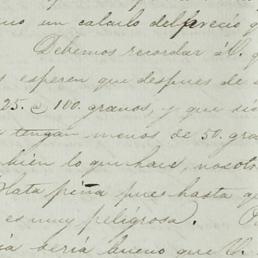 no un calculo del precio
Debemos recordar á V.
s esperen que despues de
25. @ 100. granos, y que si
tengan menos de 50. gra
bien lo que hace, nosot
Plata piña pues hasta q
es muy peligrosa.
ia seria bueno que V.